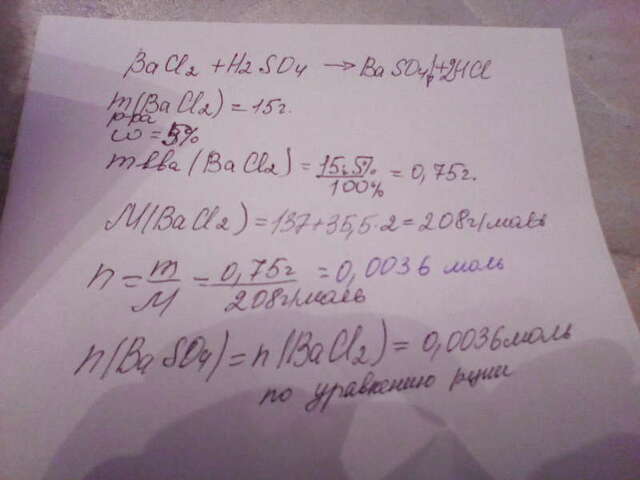 BaCl2 + H2SO4 → BaSO4↓ + 2HCl
m(BaCl2) = 15г.
р-ра
ω = 5%
m вва (BaCl2) = 15г·5% / 100% = 0,75г.
M(BaCl2) = 137+35,5·2 = 208г/моль
n = m / M = 0,75г / 208г/моль = 0,0036 моль
n(BaSO4) = n(BaCl2) = 0,0036 моль
по уравнению р-ции